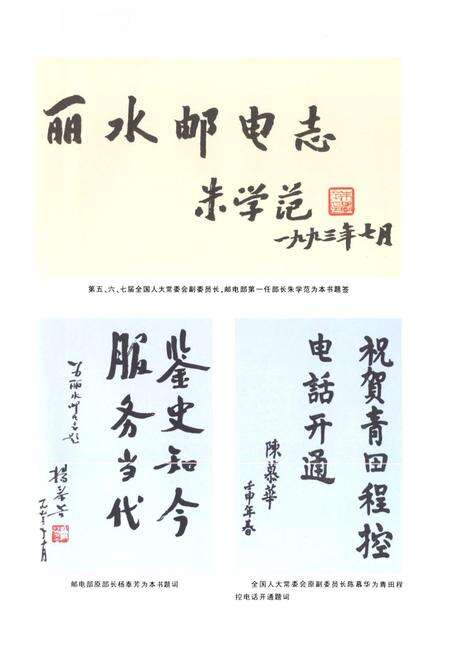 丽水邮电志
朱学范
一九九三年七月
第五、六、七届全国人大常委会副委员长、邮电部第一任部长朱学范为本书题签
鉴史知今
服务当代
为丽水邮电志题
杨泰芳
祝贺青田程控
电話开通
陳慕華
壬申年春
邮电部原部长杨泰芳为本书题词
全国人大常委会原副委员长陈慕华为青田程
控电话开通题词